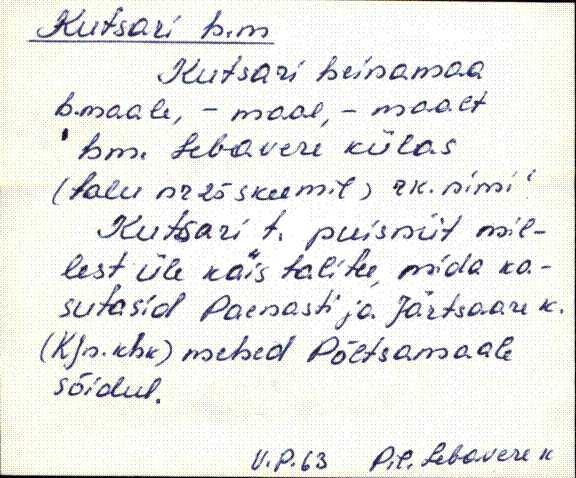 Kutsari h.m
Kutsari heinamaa
h.maale, - maal, - maalt
hm. Lebavere külas
(talu nr 25 skeemil) rk. nimi
Kutsari t. puisniit mil-
lest üle käis talitee, mida ka-
sutasid Paenasti ja Järtsaare k.
(KJn. khk) mehed Põltsamaale
sõidul.
V.P.63 Pil. Lebavere k